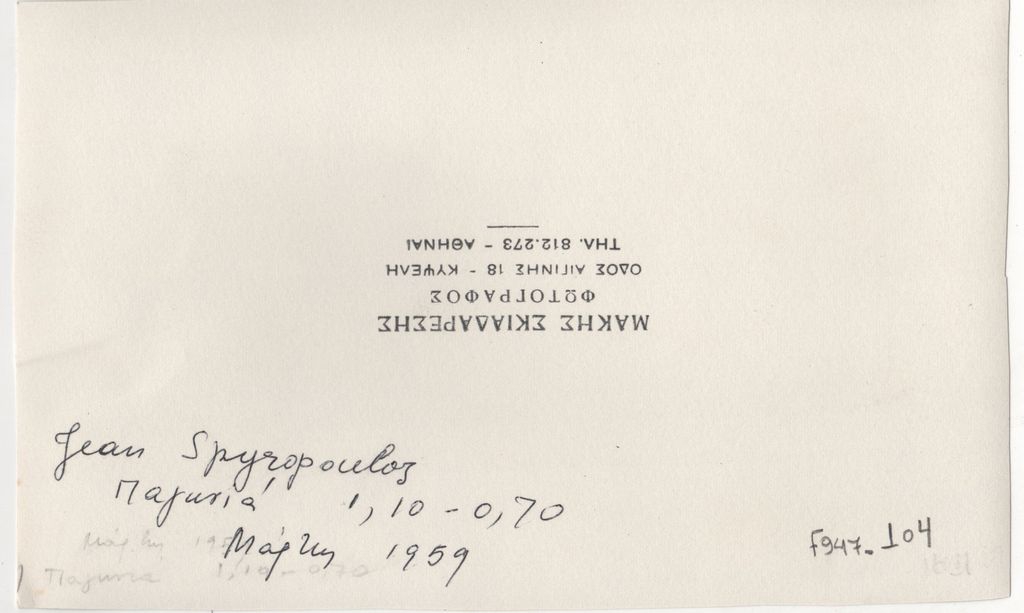 ΜΑΚΗΣ ΣΚΙΑΔΑΡΕΣΗΣ
ΦΩΤΟΓΡΑΦΟΣ
ΟΔΟΣ ΑΙΓΙΝΗΣ 18 - ΚΥΨΕΛΗ
ΤΗΛ. 812.273 - ΑΘΗΝΑΙ
Jean Spyropoulos
Παγωνιά 1,10 - 0,70
Μάρτης 1959
Μάρτης 195
Παγωνια 1,10 - 0,70
F947-104